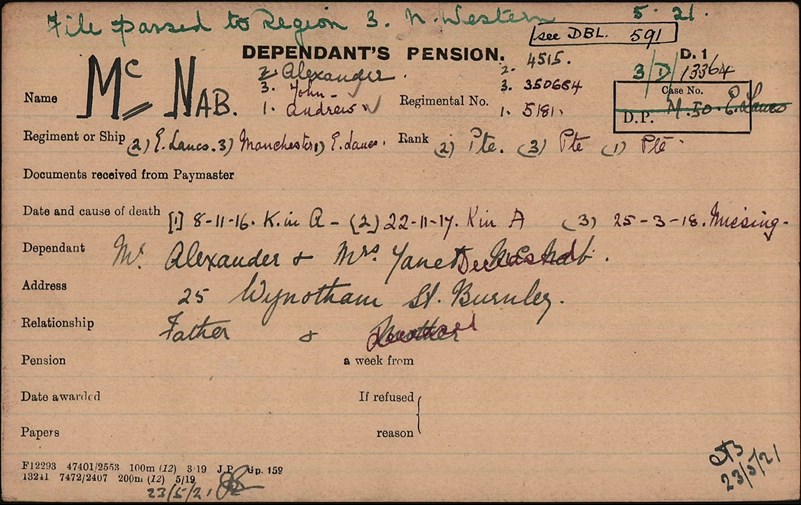 File passed to Region 3. N. Western 5.21.
see DBL. 591
DEPENDANT'S PENSION.
D. 1
3/D/13364
2. Alexander. 2. 4515.
3. John 3. 350684
Name McNAB. 1. Andrew Regimental No. 1. 5181.
Case No.
D.P. M.50.E.Lancs
Regiment or Ship (2) E. Lancs. 3) Manchester 1) E. Lancs. Rank (2) Pte. (3) Pte (1) Pte.
Documents received from Paymaster
Date and cause of death [1] 8-11-16. K. in A - (2) 22-11-17. K in A (3) 25-3-18. Missing-
Dependant Mr Alexander & Mrs Janet McNab. Deceased
Address 25 Wynotham St. Burnley.
Relationship Father & Mother Deceased
Pension a week from
Date awarded If refused
Papers reason
F12293 47401/2553 100m (12) 3/19 J.P. Gp. 159
13241 7472/2407 200m (12) 5/19
23/5/21
23/5/21